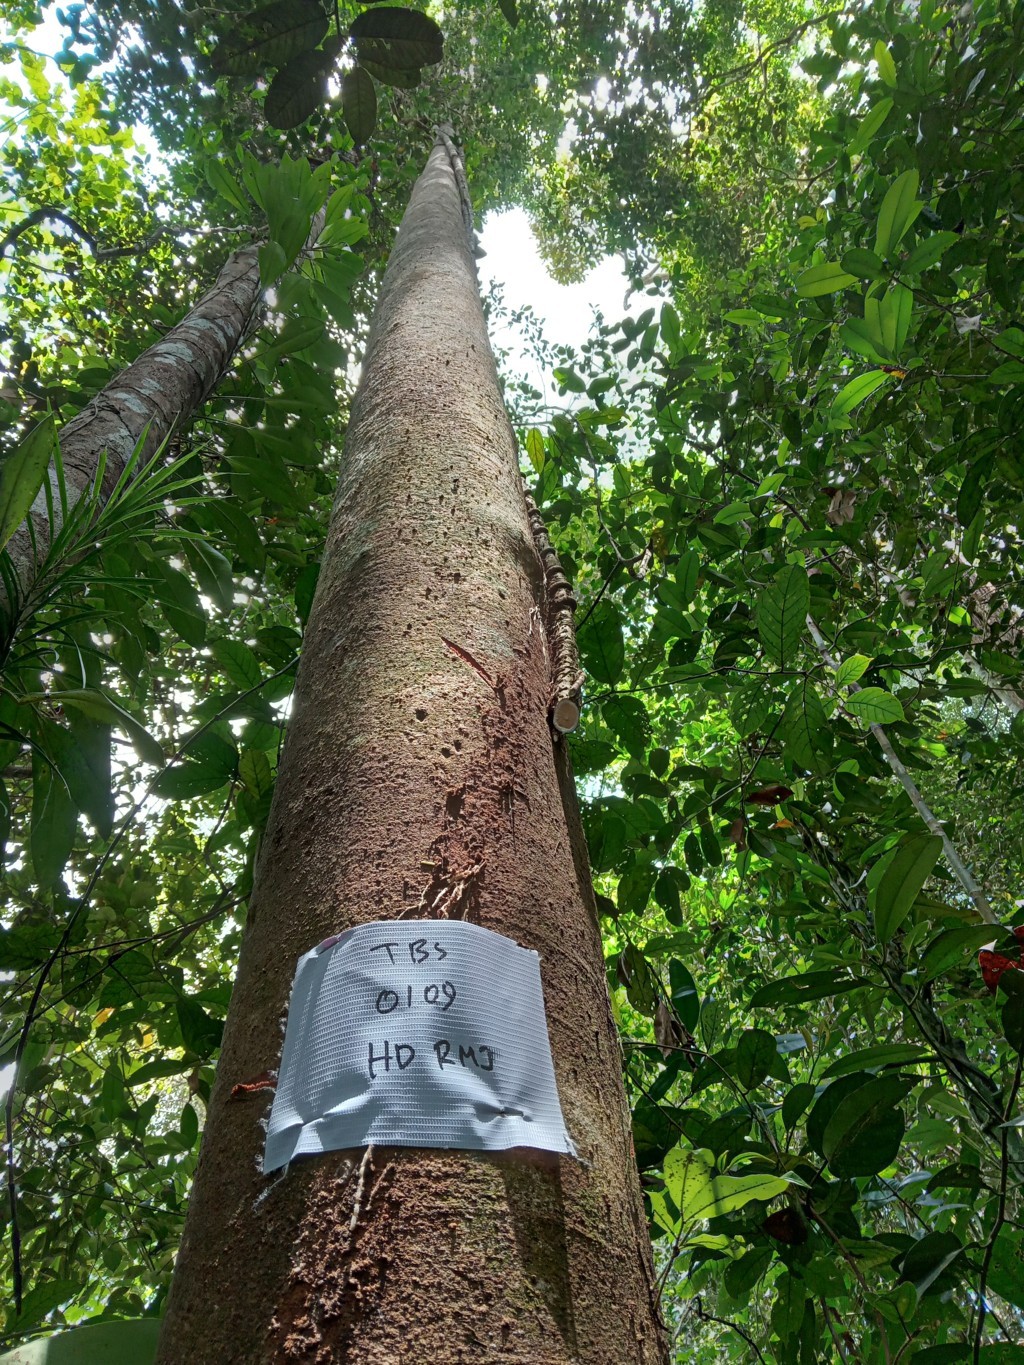 TBs
0109
HD RMJ